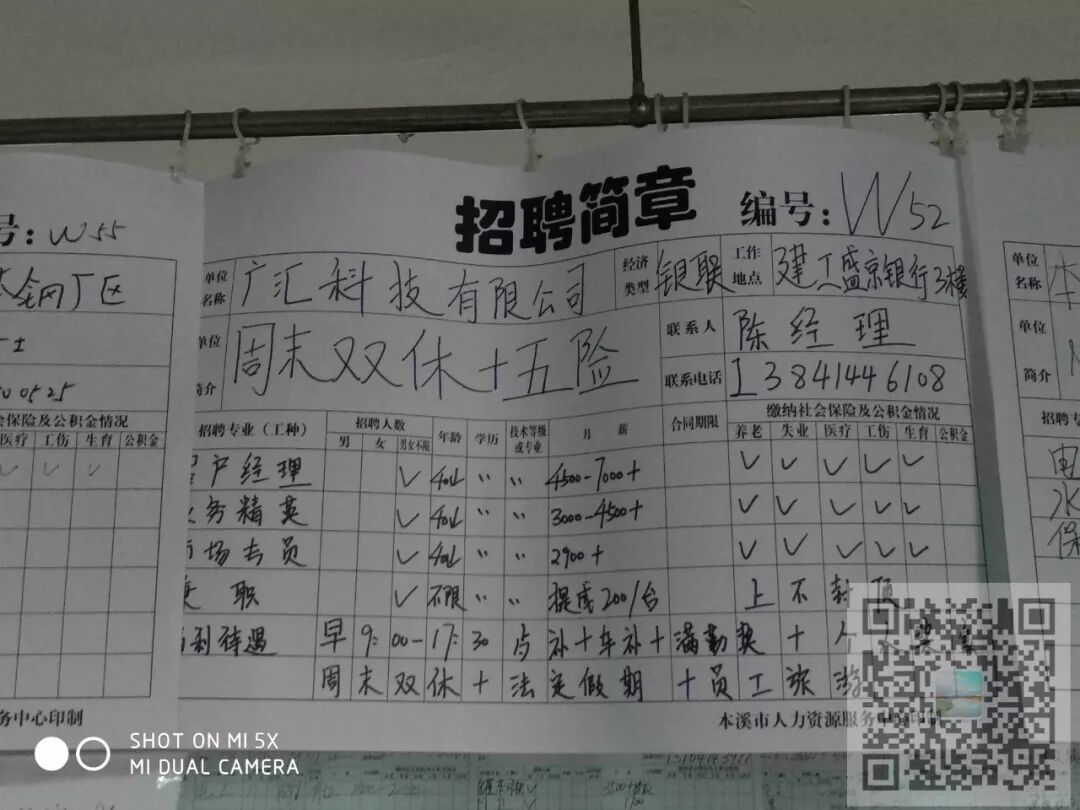 招聘简章 编号: W52
单位名称 广汇科技有限公司 经济类型 银联 工作地点 建工盛京银行3楼
单位简介 周末双休+五险 联系人 陈经理
联系电话 13841446108
招聘专业(工种) 招聘人数 年龄 学历 技术等级或专业 月薪 合同期限 缴纳社会保险及公积金情况
男 女 男女不限 养老 失业 医疗 工伤 生育 公积金
户经理 ✓ 40以 〃 〃 4500-7000+ ✓ ✓ ✓ ✓ ✓
务精英 ✓ 40以 〃 〃 3000-4500+ ✓ ✓ ✓ ✓ ✓
场专员 ✓ 40以 〃 〃 2900+ ✓ ✓ ✓ ✓ ✓
兼职 ✓ 不限 〃 〃 提成200/台 上不封顶
福利待遇 早9:00-17:30 补+车补+满勤奖+
周末双休+法定假期+员工旅游
本溪市人力资源服务中心印制
号: W55
钢厂区
00525
会保险及公积金情况
医疗 工伤 生育 公积金
✓ ✓ ✓
务中心印制
单位名称 本
单位简介
招聘专
电
水
保
SHOT ON MI 5X
MI DUAL CAMERA